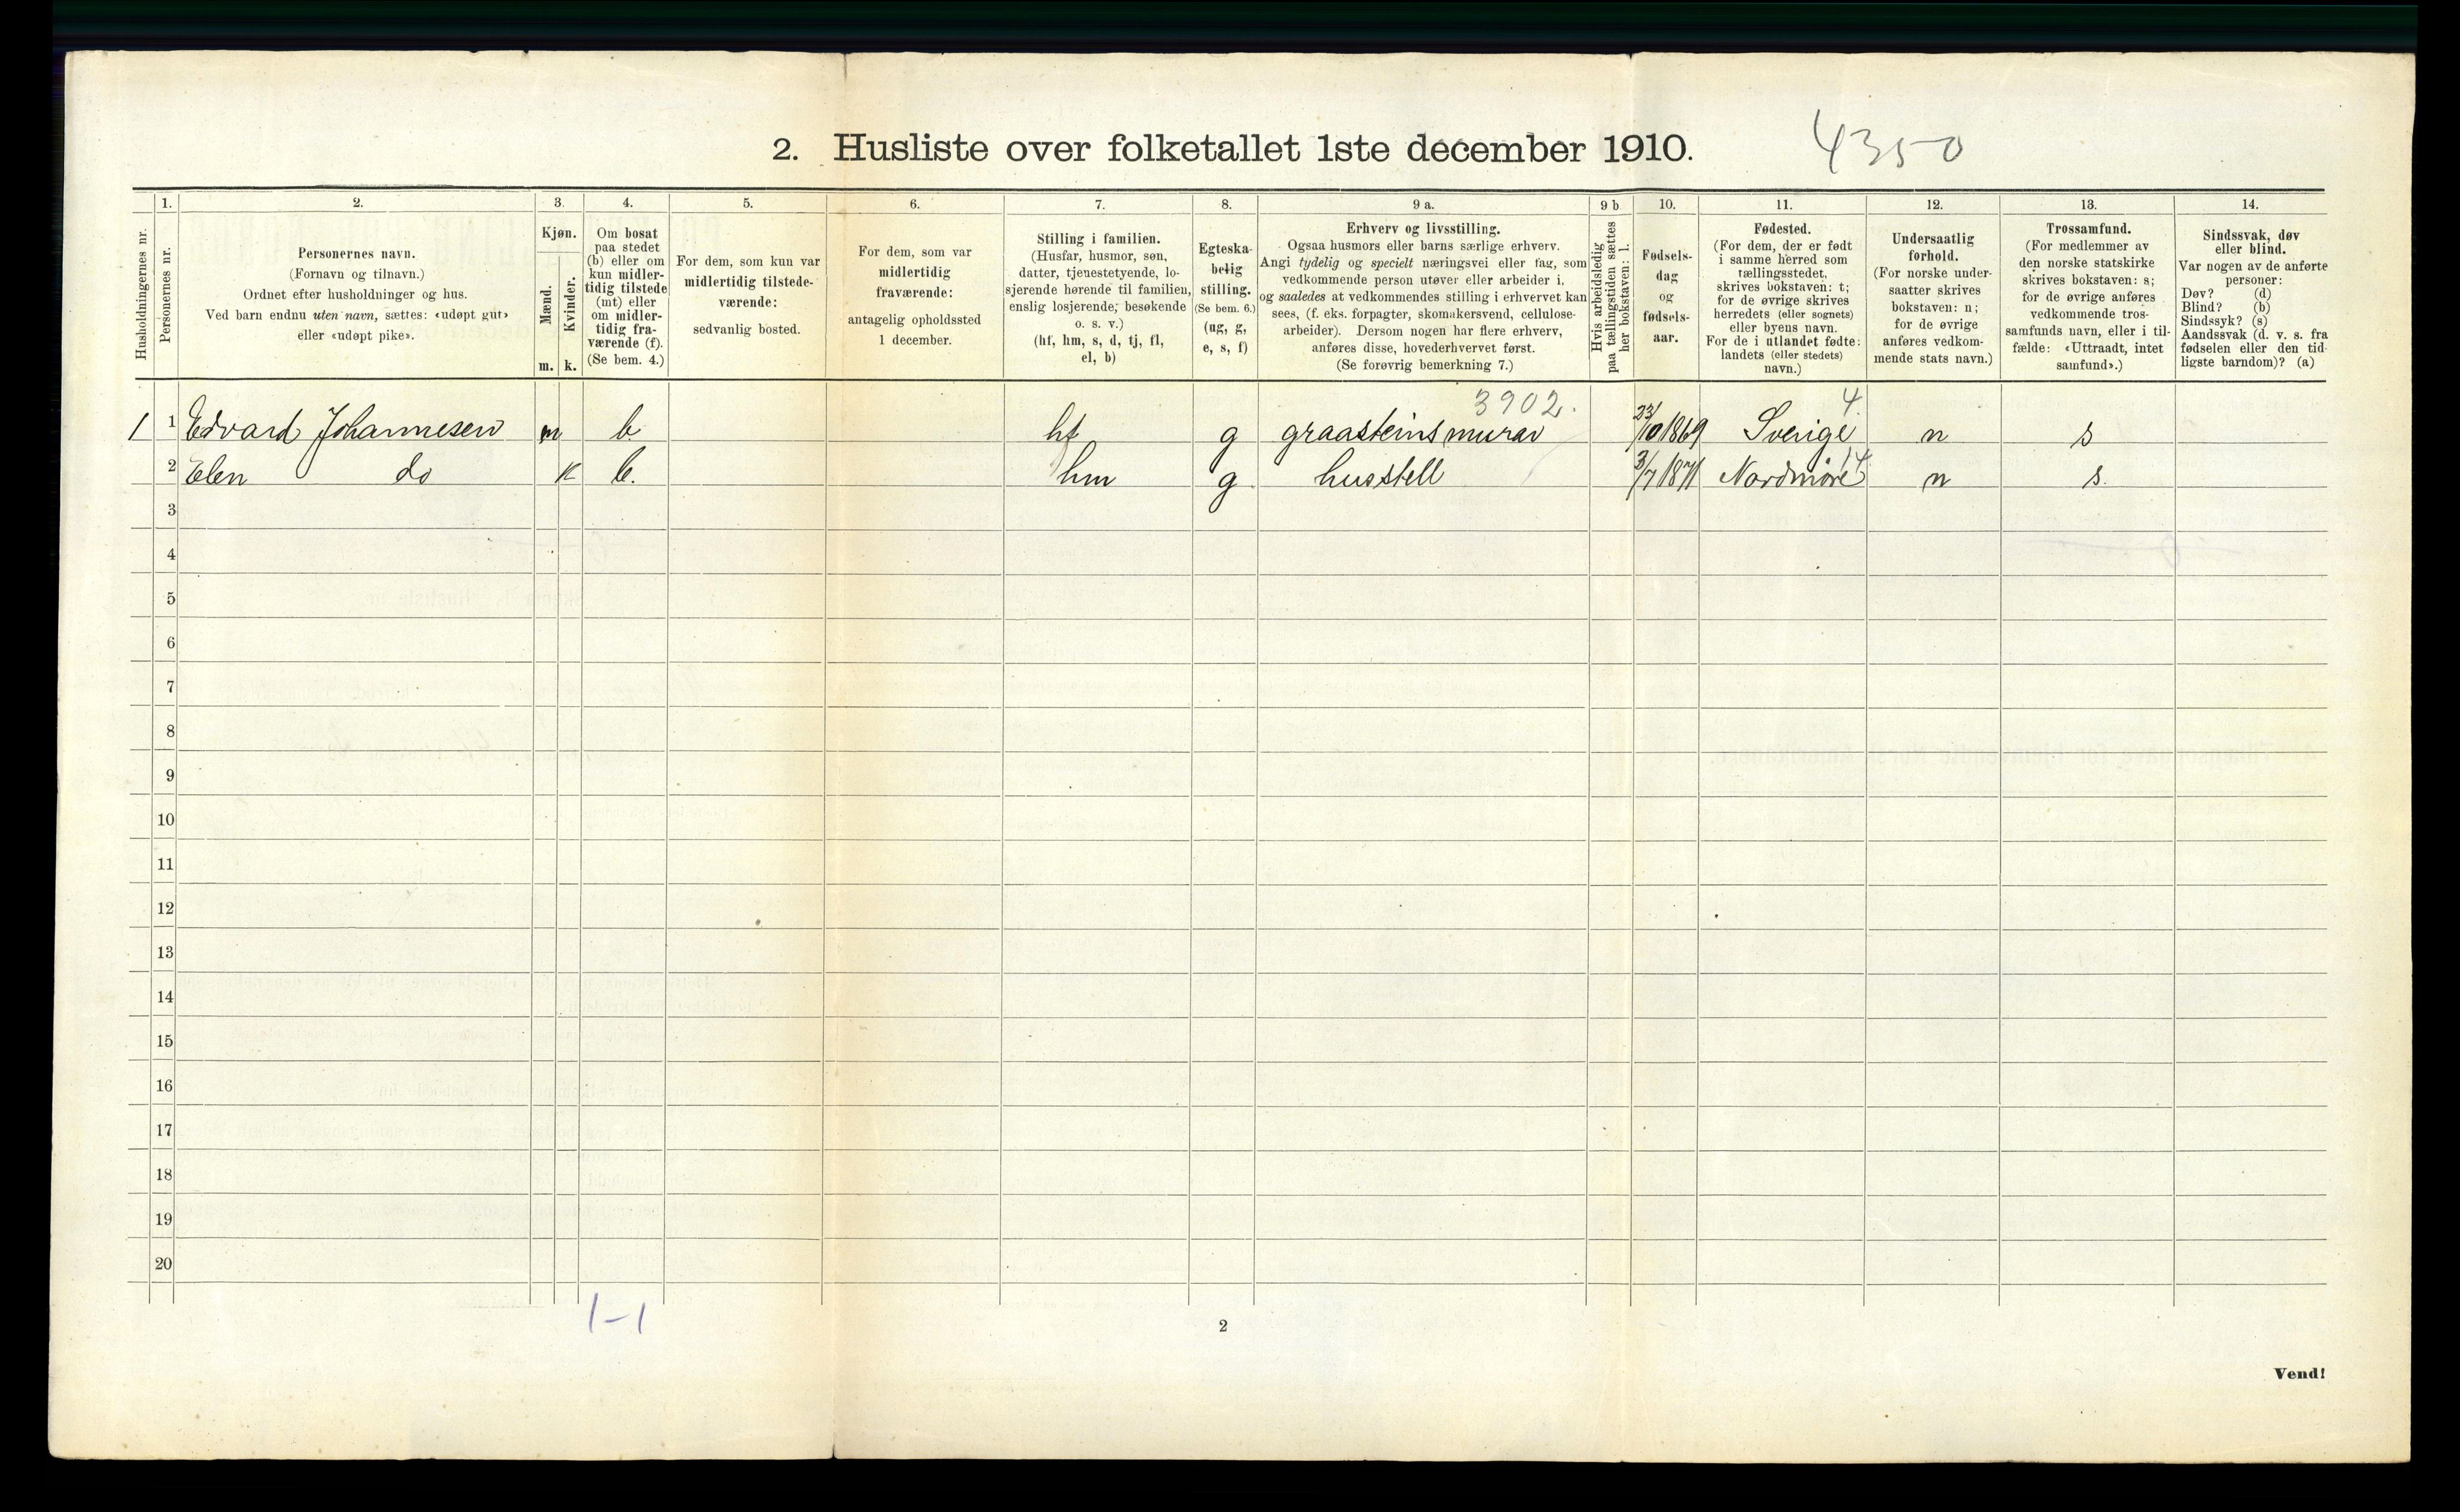 2. Husliste over folketallet 1ste december 1910.
4350
1. 2. 3. 4. 5. 6. 7. 8. 9 a. 9 b 10. 11. 12. 13. 14.
Husholdningernes nr.
Personernes nr.
Personernes navn.
(Fornavn og tilnavn.)
Ordnet efter husholdninger og hus.
Ved barn endnu uten navn, sættes: «udøpt gut»
eller «udøpt pike».
Kjøn.
Mænd.
Kvinder.
m. k.
Om bosat
paa stedet
(b) eller om
kun midler-
tidig tilstede
(mt) eller
om midler-
tidig fra-
værende (f).
(Se bem. 4.)
For dem, som kun var
midlertidig tilstede-
værende:
sedvanlig bosted.
For dem, som var
midlertidig
fraværende:
antagelig opholdssted
1 december.
Stilling i familien.
(Husfar, husmor, søn,
datter, tjenestetyende, lo-
sjerende hørende til familien,
enslig losjerende, besøkende
o. s. v.)
(hf, hm, s, d, tj, fl,
el, b)
Egteska-
belig
stilling.
(Se bem. 6.)
(ug, g,
e, s, f)
Erhverv og livsstilling.
Ogsaa husmors eller barns særlige erhverv.
Angi tydelig og specielt næringsvei eller fag, som
vedkommende person utøver eller arbeider i,
og saaledes at vedkommendes stilling i erhvervet kan
sees, (f. eks. forpagter, skomakersvend, cellulose-
arbeider). Dersom nogen har flere erhverv,
anføres disse, hovederhvervet først.
(Se forøvrig bemerkning 7.)
Hvis arbeidsledig
paa tællingstiden sættes
her bokstaven: l.
Fødsels-
dag
og
fødsels-
aar.
Fødested.
(For dem, der er født
i samme herred som
tællingsstedet,
skrives bokstaven: t;
for de øvrige skrives
herredets (eller sognets)
eller byens navn.
For de i utlandet fødte:
landets (eller stedets)
navn.)
Undersaatlig
forhold.
(For norske under-
saatter skrives
bokstaven: n;
for de øvrige
anføres vedkom-
mende stats navn.)
Trossamfund.
(For medlemmer av
den norske statskirke
skrives bokstaven: s;
for de øvrige anføres
vedkommende tros-
samfunds navn, eller i til-
fælde: «Uttraadt, intet
samfund».)
Sindssvak, døv
eller blind.
Var nogen av de anførte
personer:
Døv? (d)
Blind? (b)
Sindssyk? (s)
Aandssvak (d. v. s. fra
fødselen eller den tid-
ligste barndom)? (a)
3902. 4.
1 1 Edvard Johannesen m b hf g graasteinsmurar 23/10 1869 Sverige n s
14
2 Elen do k b. hm g husstell 3/7 1871 Nordmøre n s.
3
4
5
6
7
8
9
10
11
12
13
14
15
16
17
18
19
20
1-1
2
Vend!